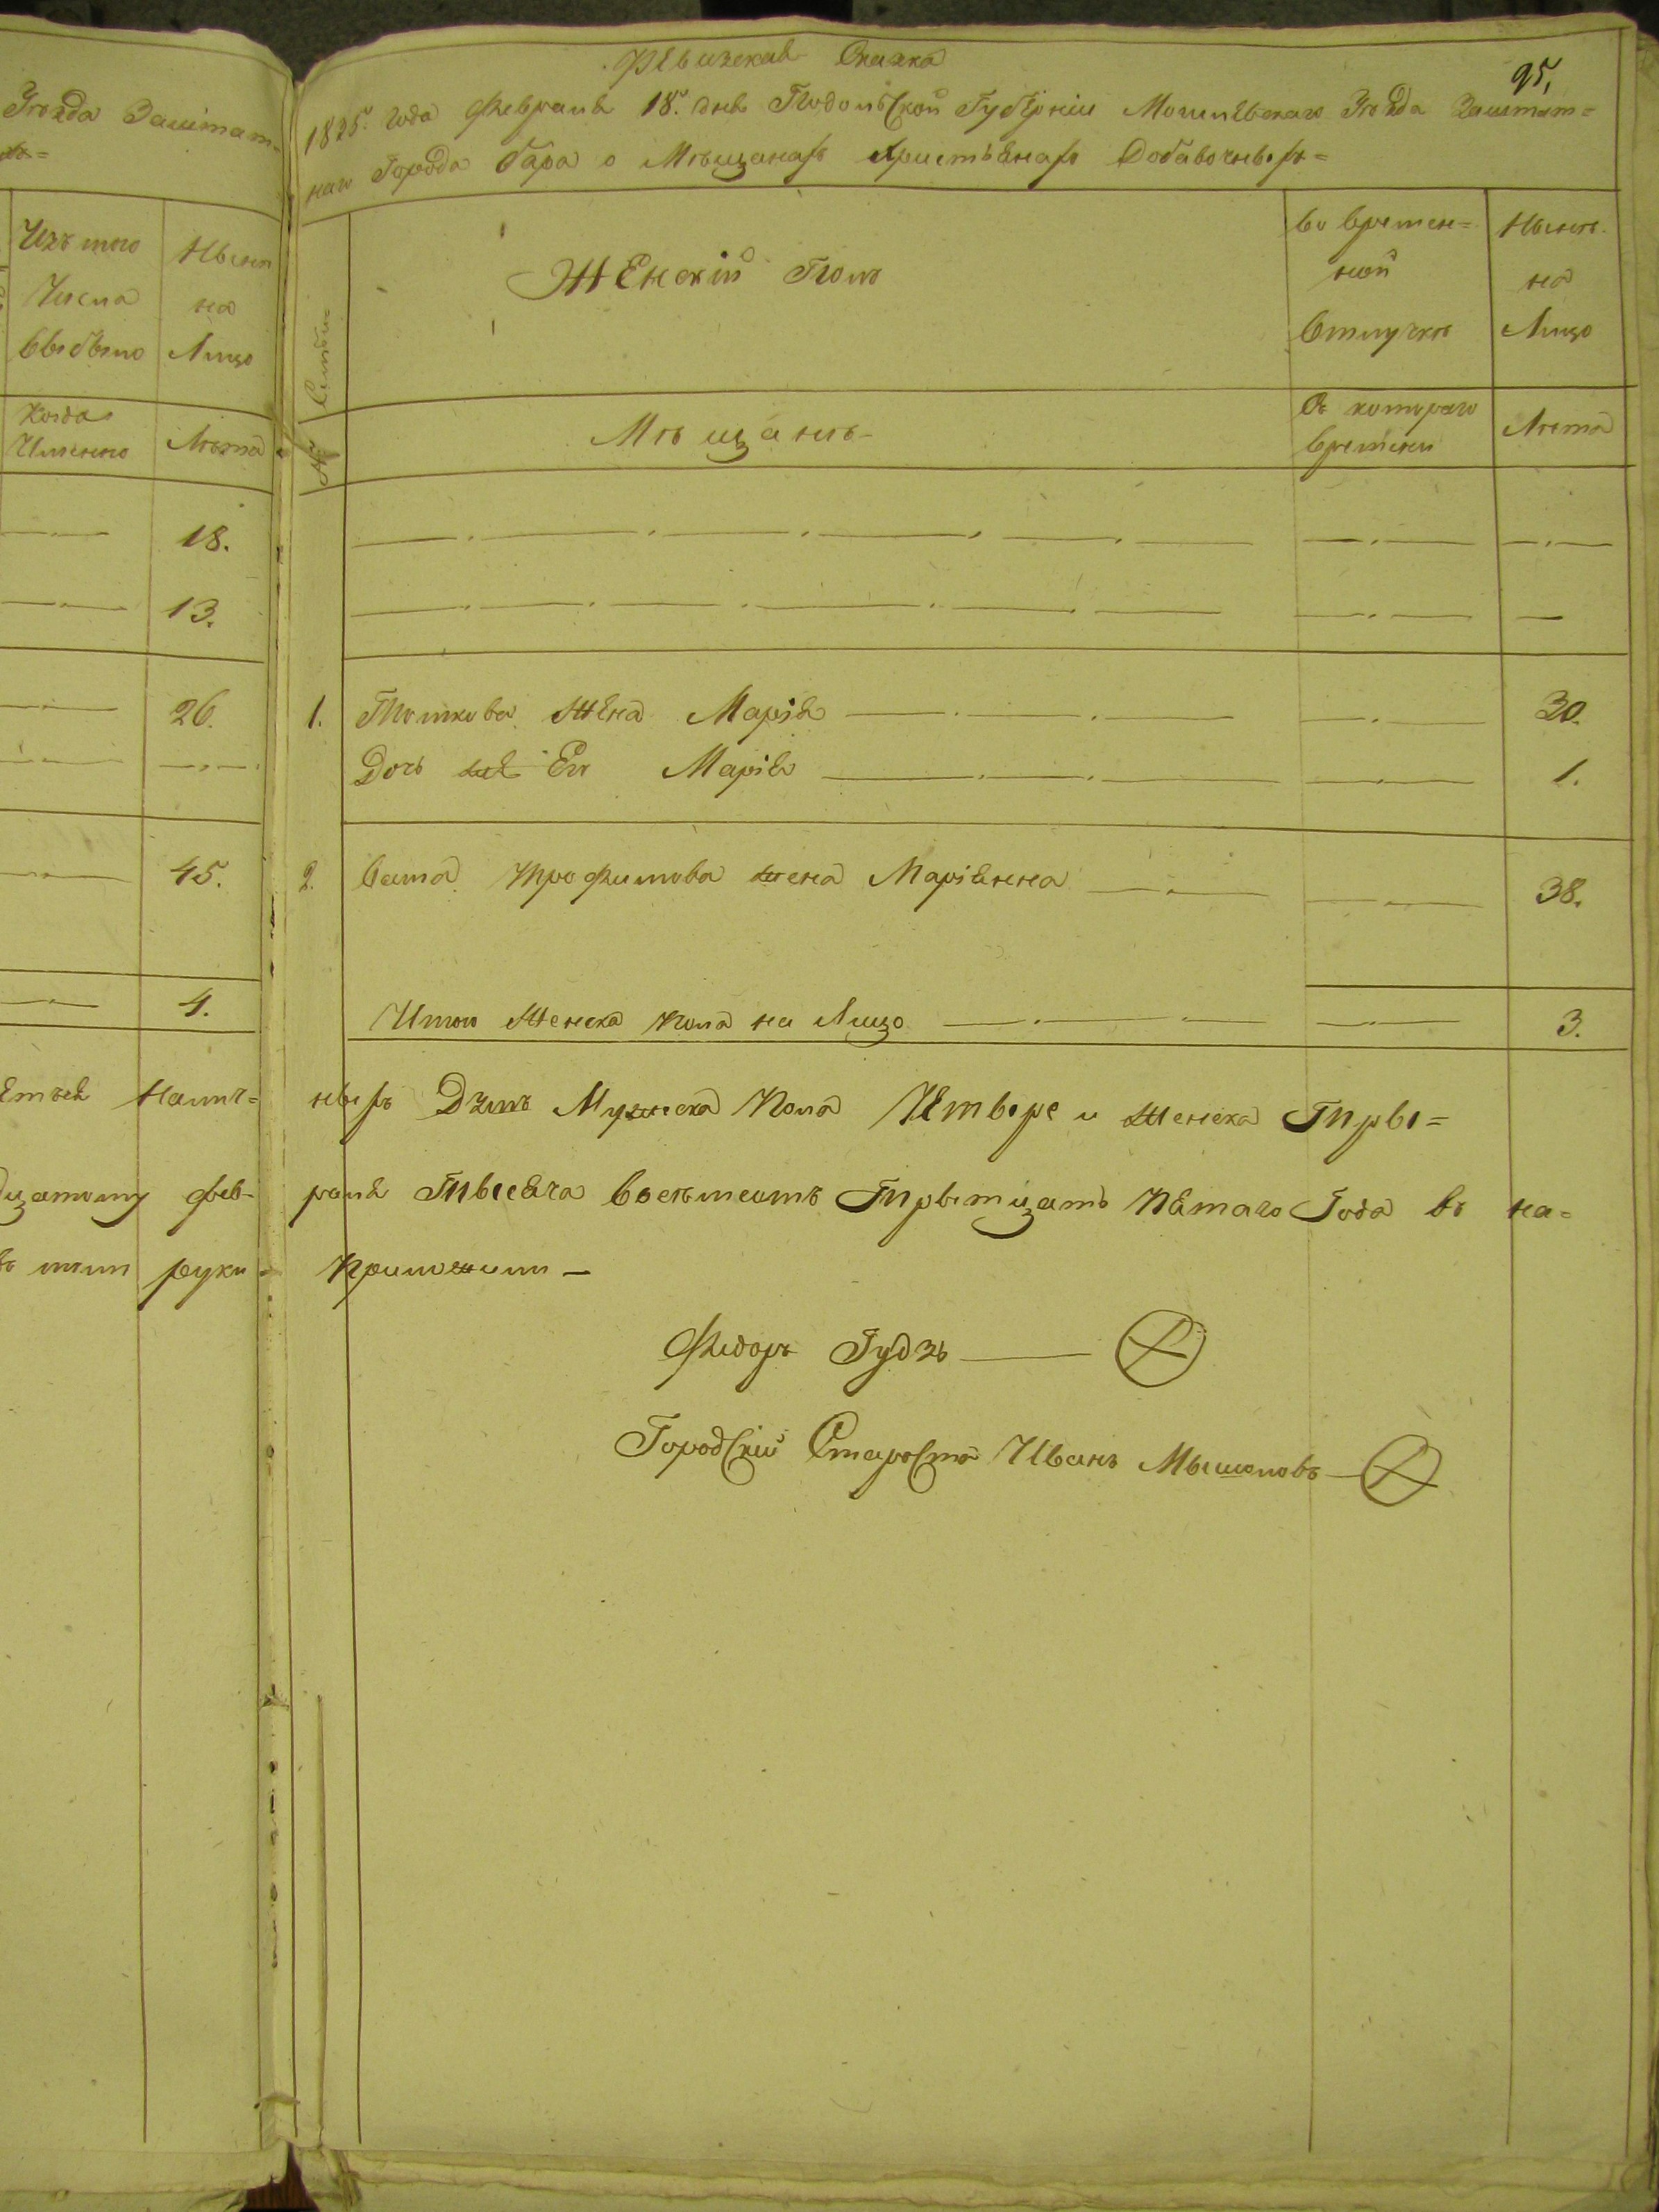 Уѣзда Заштат=
Изъ того
Числа
выбыло
Нынѣ
на
Лицо
Когда
Именно
Лѣта
18.
13.
26.
45.
4.
Налич=
Фев-
руки
95,
Ревизская Сказка
1835. года Февраля 18. дня Подольской Губернии Могилевскаго Уѣзда Заштат=
наго Города Бара о Мѣщанахъ Христіянахъ Добавочныхъ=
№ Семьи=
Женскій Полъ
во времен=
ной
Отлучкѣ
Нынѣ
на
Лицо
Мѣщанъ
Съ котораго
времени
Лѣта
1. жена Марія 30.
Дочь Его Марія 1.
2. Трофимова жена Маріянна 38.
Итого Женска пола на Лицо 3.
ныхъ Душъ Мужеска Пола Четыре и Женска Тры=
раля Тысеча восемьсотъ Трытцать Пятаго Года въ на=
Приложили —
Федоръ Гудзь
Городскій Староста Иванъ